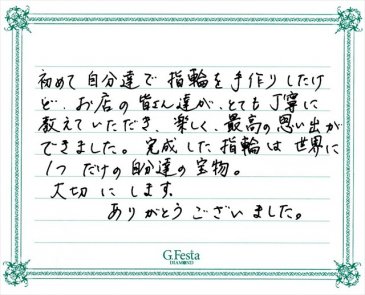 初めて自分達で指輪を手作りしたけ
ど、お店の皆さん達が、とても丁寧に
教えていただき、楽しく、最高の思い出が
できました。完成した指輪は世界に
1つだけの自分達の宝物。
大切にします。
ありがとうございました。
G.Festa
DIAMOND